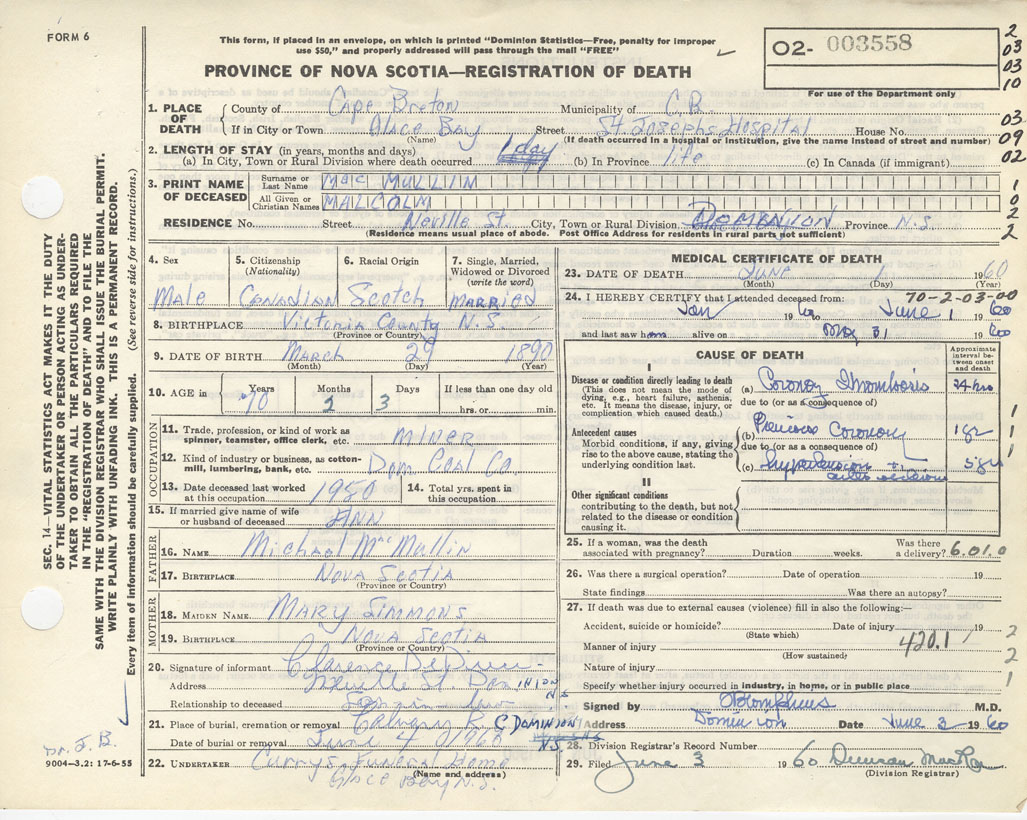 FORM 6
This form, if placed in an envelope, on which is printed "Dominion Statistics—Free, penalty for improper
use $50," and properly addressed will pass through the mail "FREE"
PROVINCE OF NOVA SCOTIA—REGISTRATION OF DEATH
02- 003558
For use of the Department only
2
03
03
10
03
09
02
1
0
2
2
SEC. 14—VITAL STATISTICS ACT MAKES IT THE DUTY
OF THE UNDERTAKER OR PERSON ACTING AS UNDER-
TAKER TO OBTAIN ALL THE PARTICULARS REQUIRED
IN THE "REGISTRATION OF DEATH" AND TO FILE THE
SAME WITH THE DIVISION REGISTRAR WHO SHALL ISSUE THE BURIAL PERMIT.
WRITE PLAINLY WITH UNFADING INK. THIS IS A PERMANENT RECORD.
Every item of information should be carefully supplied. (See reverse side for instructions.)
1. PLACE OF DEATH County of Cape Breton Municipality of C.B.
If in City or Town Glace Bay Street St. Josephs Hospital House No.
(Name) (If death occurred in a hospital or institution, give the name instead of street and number)
2. LENGTH OF STAY (in years, months and days)
(a) In City, Town or Rural Division where death occurred 1 day (b) In Province life (c) In Canada (if immigrant)
3. PRINT NAME OF DECEASED Surname or Last Name MAC MULLIN
All Given or Christian Names MALCOLM
RESIDENCE No. Street Neville St. City, Town or Rural Division DOMINION Province N.S
(Residence means usual place of abode. Post Office Address for residents in rural parts not sufficient)
4. Sex Male
5. Citizenship (Nationality) Canadian
6. Racial Origin Scotch
7. Single, Married, Widowed or Divorced (write the word) MARRIED
8. BIRTHPLACE Victoria County N.S
(Province or Country)
9. DATE OF BIRTH March 29 1890
(Month) (Day) (Year)
10. AGE in Years 70 Months 2 Days 3 If less than one day old
hrs. or min.
OCCUPATION
11. Trade, profession, or kind of work as spinner, teamster, office clerk, etc. MINER
12. Kind of industry or business, as cotton-mill, lumbering, bank, etc. Dom Coal Co.
13. Date deceased last worked at this occupation 1950
14. Total yrs. spent in this occupation
15. If married give name of wife or husband of deceased ANN
FATHER
16. NAME Michael MacMullin
17. BIRTHPLACE NOVA SCOTIA
(Province or Country)
MOTHER
18. MAIDEN NAME MARY SIMMONS
19. BIRTHPLACE NOVA SCOTIA
(Province or Country)
20. Signature of informant Clarence
Address Neville St Dominion N S
Relationship to deceased Son in-law
21. Place of burial, cremation or removal Calvary R C DOMINION N.S.
Date of burial or removal June 4 0/1960
22. UNDERTAKER Currys Funeral Home
(Name and address)
Glace Bay N.S.
Dr. J. B.
9004—3.2: 17-6-55
MEDICAL CERTIFICATE OF DEATH
23. DATE OF DEATH June 1 1960
(Month) (Day) (Year)
24. I HEREBY CERTIFY that I attended deceased from: 70-2-03-00
Jan 19 60 to June 1 19 60
and last saw him alive on May 31 1960
CAUSE OF DEATH
Approximate interval between onset and death
I
Disease or condition directly leading to death
(This does not mean the mode of dying, e.g., heart failure, asthenia, etc. It means the disease, injury, or complication which caused death.)
(a) Coronary Thrombosis 24 hrs
due to (or as a consequence of)
Antecedent causes
Morbid conditions, if any, giving rise to the above cause, stating the underlying condition last.
(b) Previous Coronary 1 yr
due to (or as a consequence of)
(c) Hypertension
II
Other significant conditions
contributing to the death, but not related to the disease or condition causing it.
1
1
1
25. If a woman, was the death associated with pregnancy? Duration weeks. Was there a delivery? 6.01.0
26. Was there a surgical operation? Date of operation 19
State findings Was there an autopsy?
27. If death was due to external causes (violence) fill in also the following:—
Accident, suicide or homicide? Date of injury 19
(State which)
Manner of injury 420.1
(How sustained)
Nature of injury
Specify whether injury occurred in industry, in home, or in public place
2
2
1
Signed by M.D.
Address Dominion Date June 3 1960
28. Division Registrar's Record Number
29. Filed June 3 1960 Duncan
(Division Registrar)